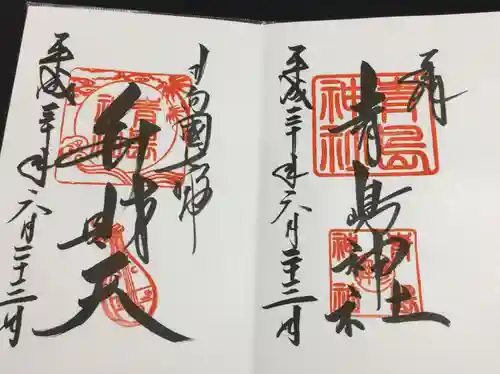 奉拝
青島神社
青島神社
平成三十年六月二十三日
辨財天
青島神社
平成三十年六月二十三日